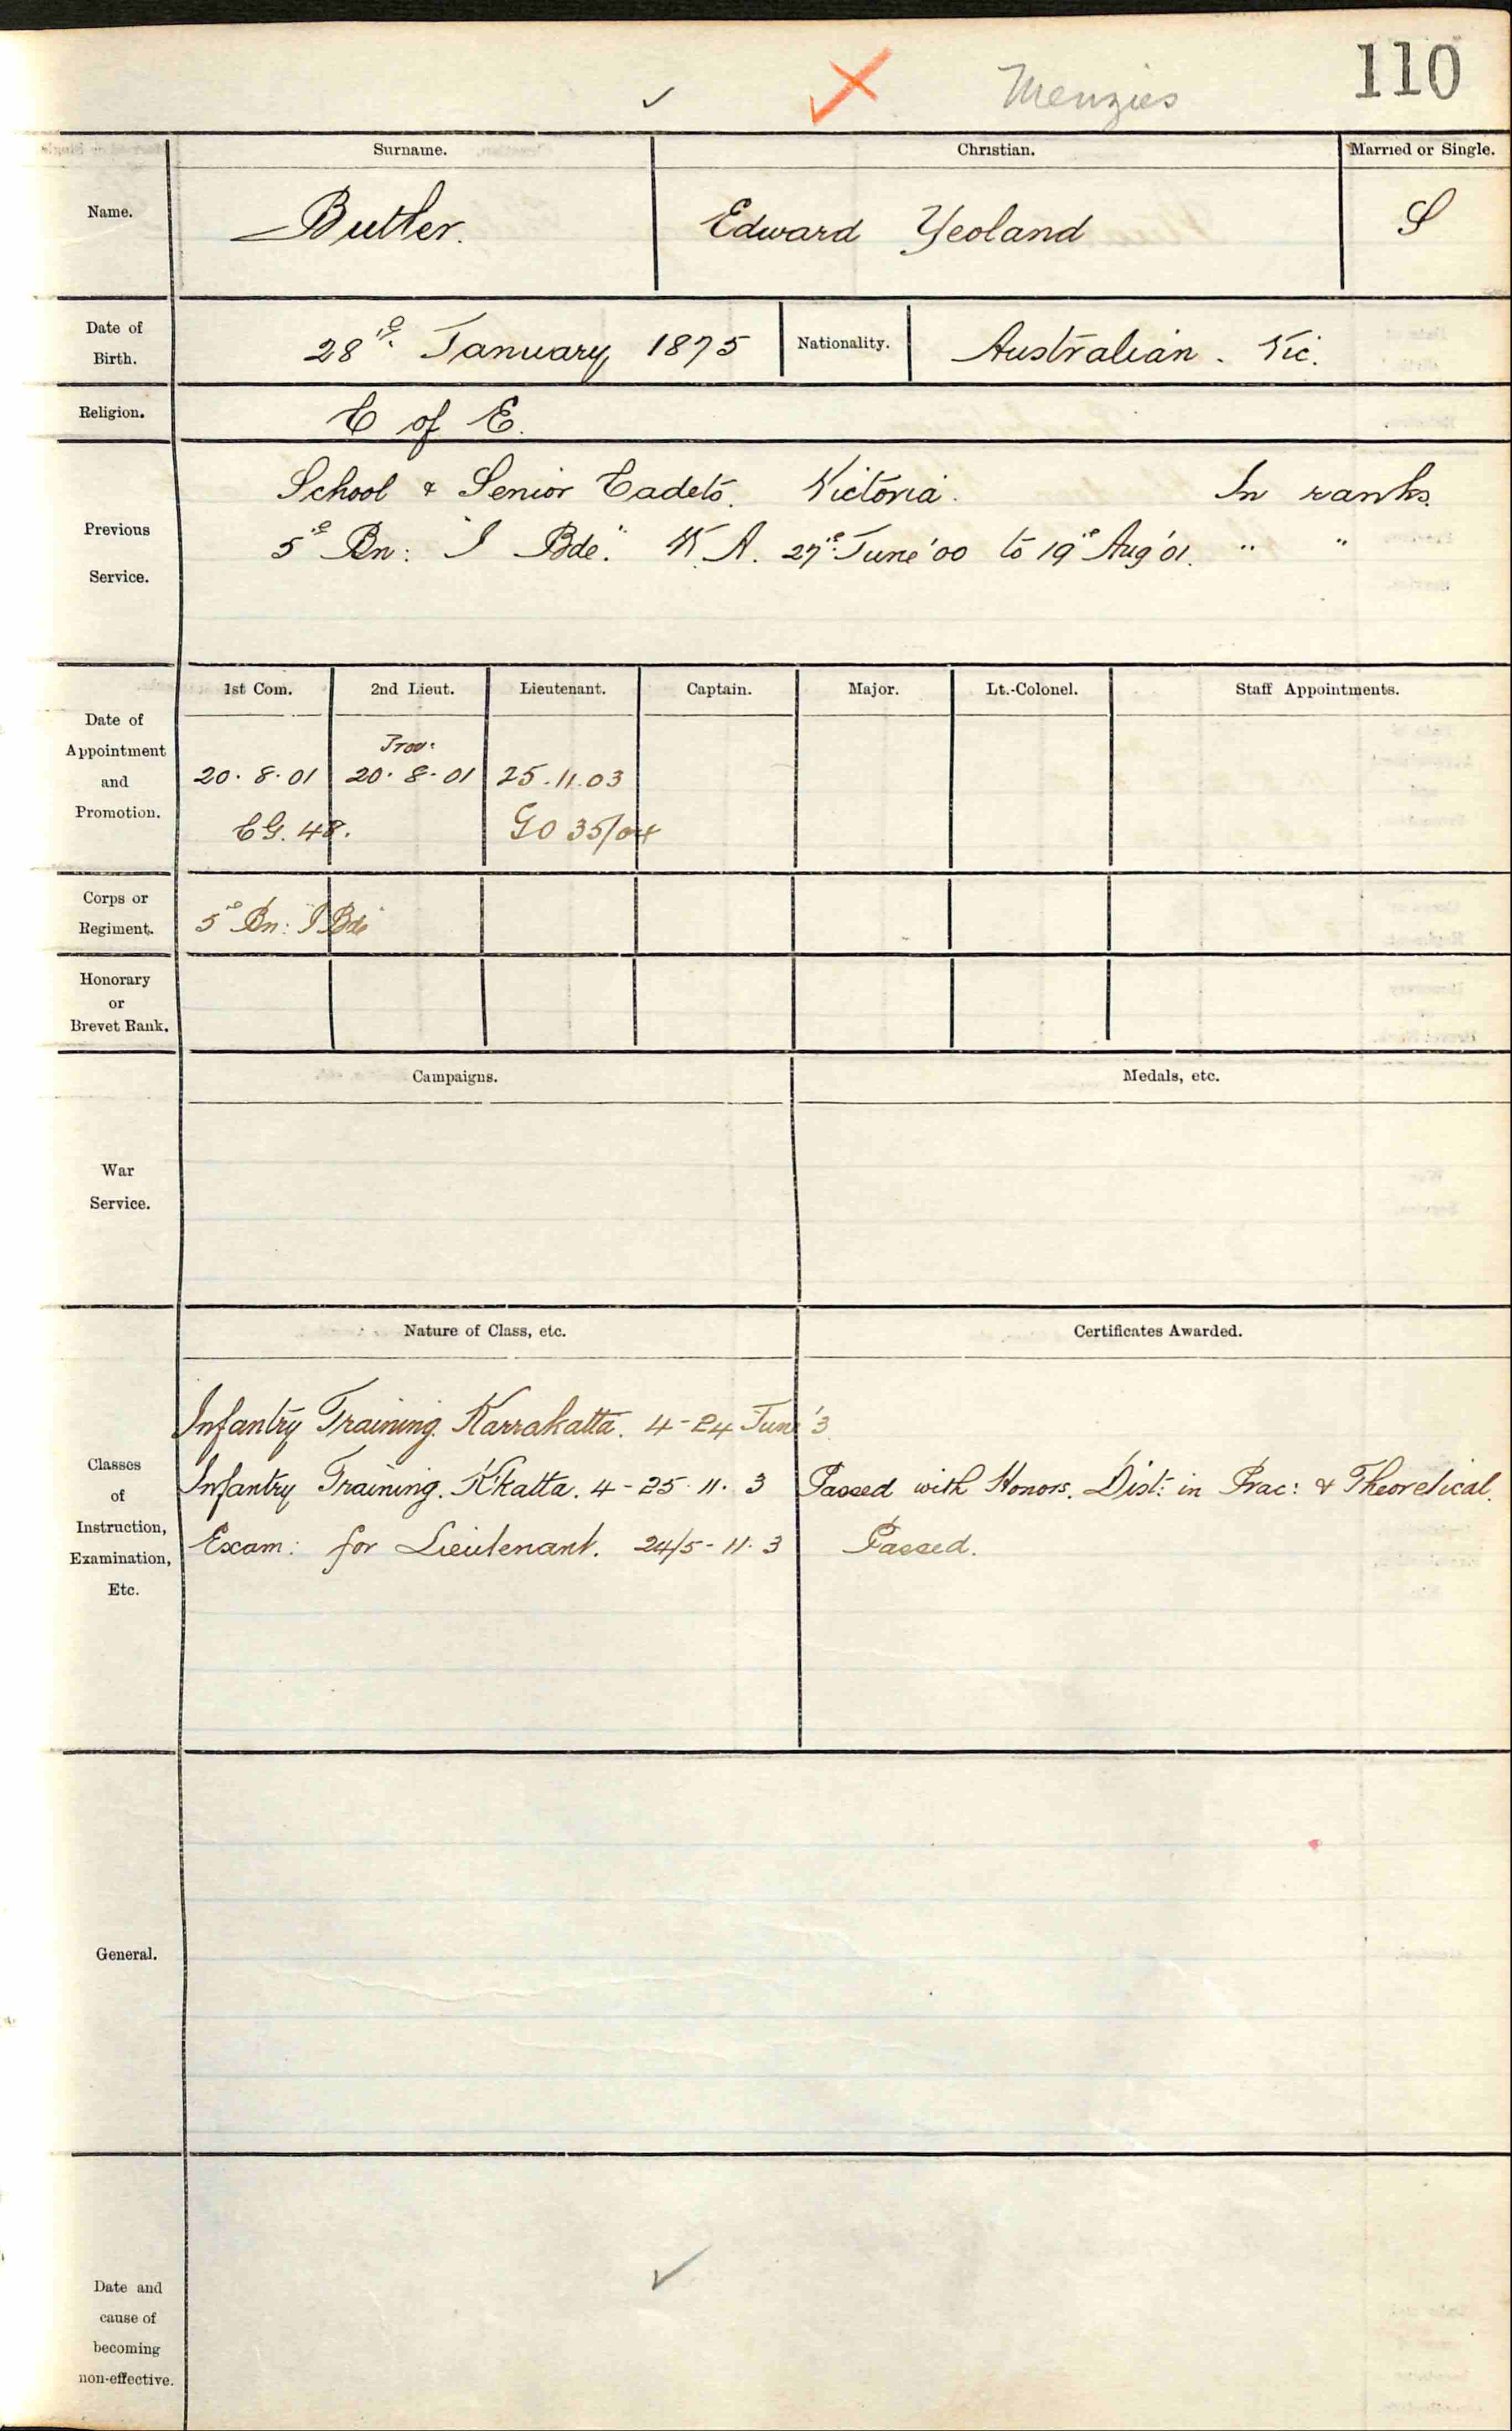 Menzies 110
Surname. Christian. Married or Single.
Name. Butler. Edward Yeoland S
Date of Birth. 28th January 1875 Nationality. Australian. Vic.
Religion. C of E.
Previous Service.
School & Senior Cadets. Victoria. In ranks.
5th Bn: "I Bde." W.A. 27th June '00 to 19th Aug '01. " "
Date of Appointment and Promotion.
1st Com. 2nd Lieut. Lieutenant. Captain. Major. Lt.-Colonel. Staff Appointments.
Prov:
20.8.01 20.8.01 25.11.03
CG. 48. GO 35/04
Corps or Regiment. 5th Bn: I Bde
Honorary or Brevet Rank.
War Service.
Campaigns. Medals, etc.
Classes of Instruction, Examination, Etc.
Nature of Class, etc. Certificates Awarded.
Infantry Training. Karrakatta. 4-24 June '3
Infantry Training. K'katta. 4-25.11.3 Passed with Honors. Dist: in Prac: & Theoretical.
Exam: for Lieutenant. 24/5-11.3 Passed.
General.
Date and cause of becoming non-effective.